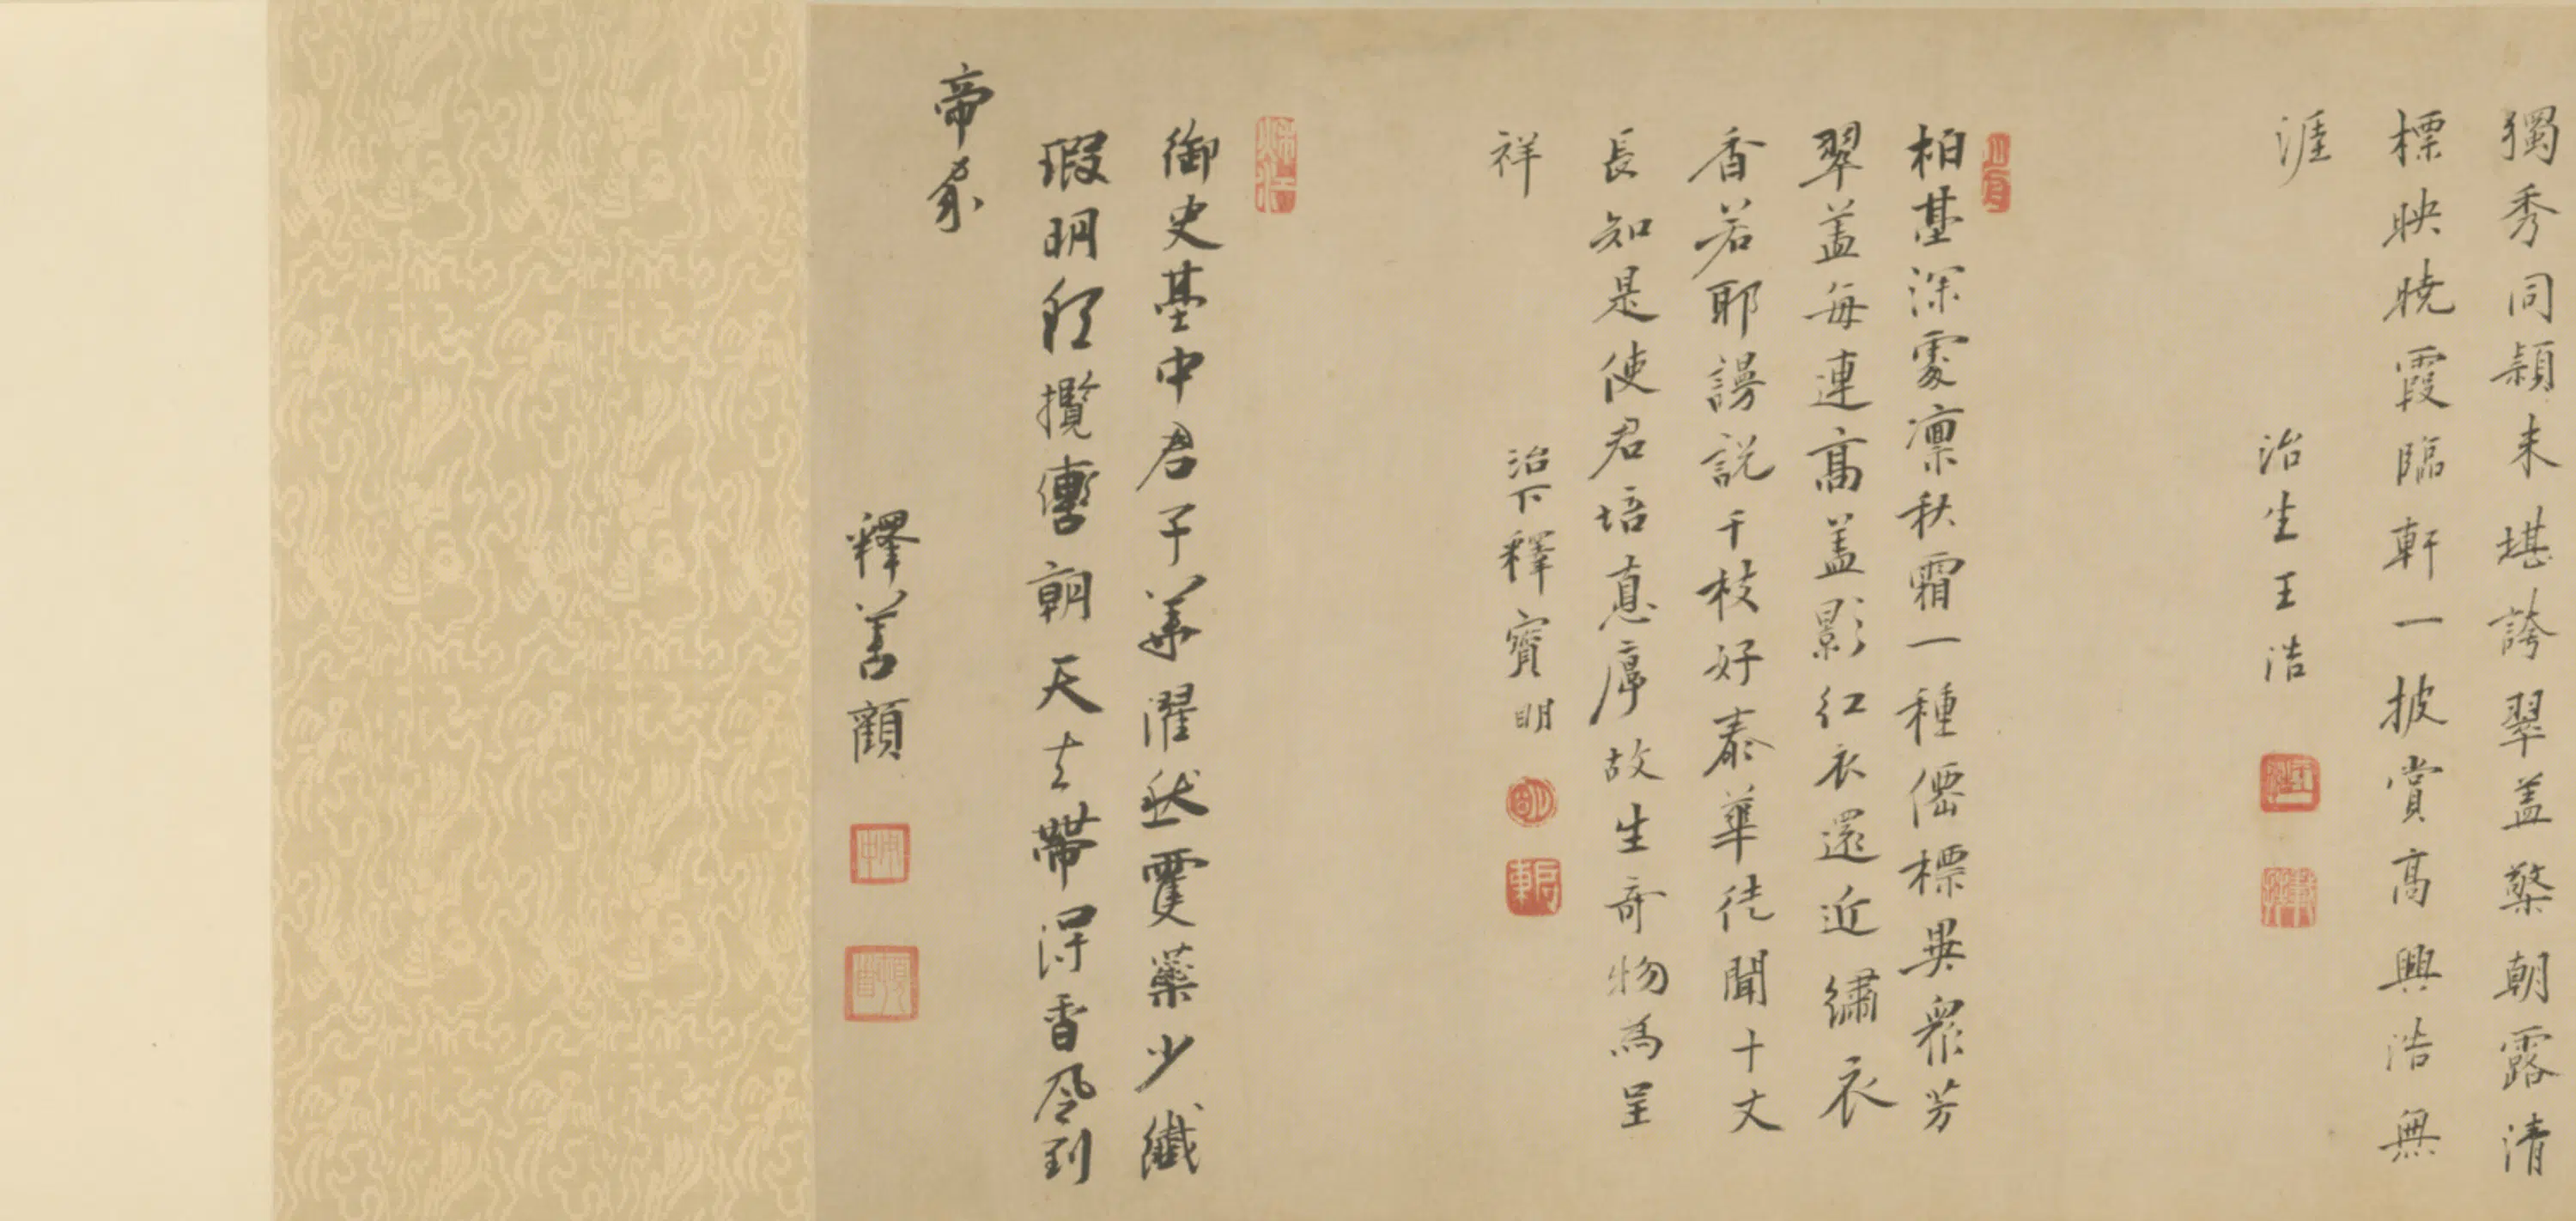 獨秀同穎未堪誇翠盖擎朝露清
標映曉霞臨軒一披賞高興浩無
涯
治生王浩
柏臺深處凛秋霜一種僊標異衆芳
翠盖每連高盖影紅衣還近繡衣
香若耶謾説千枝好泰華徒聞十丈
長知是使君培悳厚故生奇物為呈
祥
治下釋寳明
御史臺中君子華濯然雙蕖少纖
瑕明程攬轡朝天去帶得香風到
帝家
釋善顧